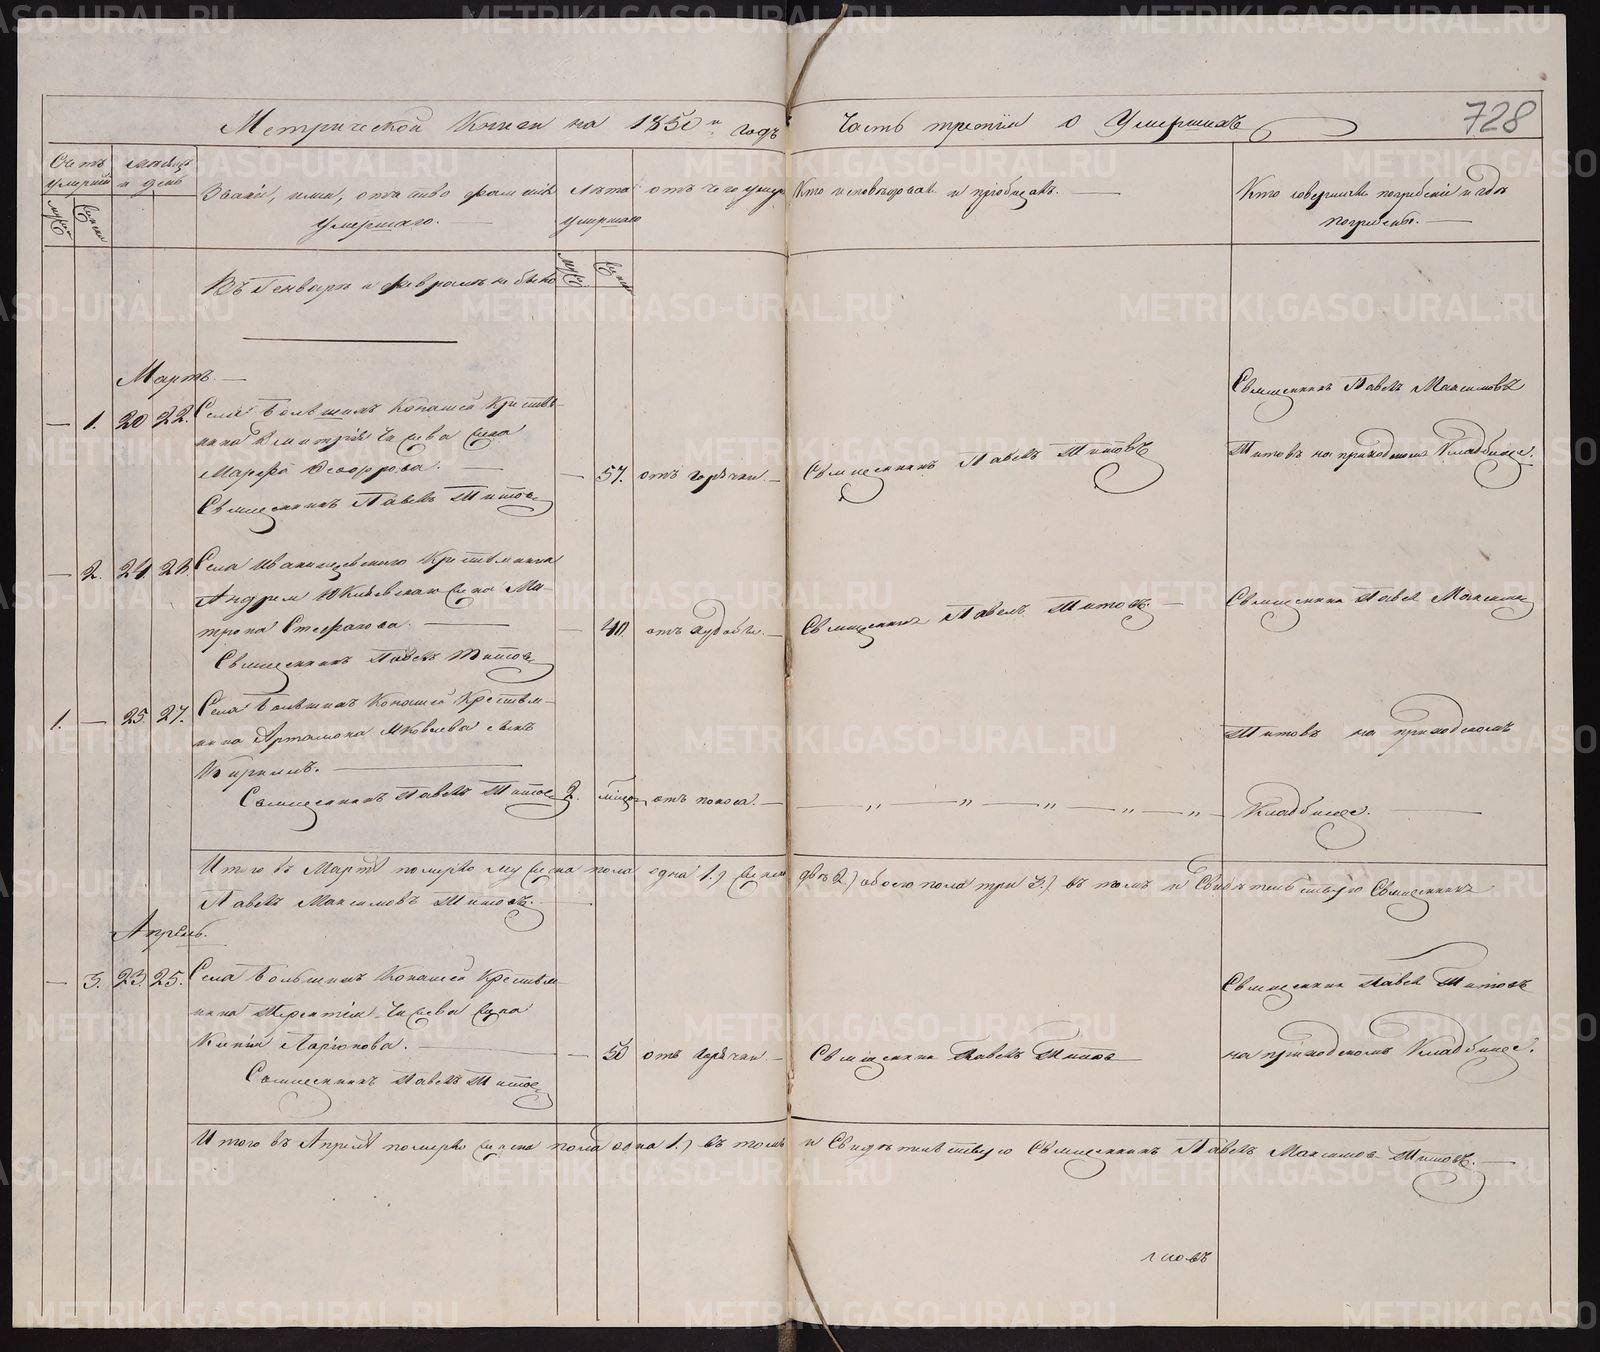 728
Метрической Книги на 1850й годъ Часть третiя о Умершихъ
Счетъ умершихъ
Мѣсяцъ и день
Званiе, имя, отчество фамилiя умершаго.
Лѣта умершаго
отъ чего умеръ
Кто исповѣдовалъ и прiобщалъ.
Кто совершилъ погребенiе и гдѣ погребены.
муж
женск
муж
жен
Въ Генварѣ и февралѣ не было
Мартъ.
— 1. 20 22. Села Большихъ Конашей Крестья-
нина Дмитрiя жена
Марфа Ѳедорова. — 57. отъ горячки. — Священникъ Павелъ Титовъ
Священникъ Павелъ Титовъ
Священникъ Павелъ Максимовъ
Титовъ на приходскомъ Кладбище.
— 2. 24 28. Села Иванищевскаго Крестьянина
Андрея жена Ма-
трона Стефанова. — 40. отъ худобы. — Священникъ Павелъ Титовъ. —
Священникъ Павелъ Титовъ
Священникъ Павелъ Максимовъ
1. — 25 27. Села Большихъ Конашей Крестья-
нина Артамона Яковлева сынъ
Кириллъ.
Священникъ Павелъ Титовъ 2. мѣсяц отъ поноса. — „ — „ — „ — „ — „ —
Титовъ на приходскомъ
Кладбище.
Итого въ Мартѣ померло мужеска пола одна 1.) женска двѣ 2.) обоего пола три 3.) въ томъ и Свидѣтельствую Священникъ
Павелъ Максимовъ Титовъ.
Апрель.
— 3. 23. 25. Села Большихъ Конашей Крестья-
нина Терентiя жена
Ксенiя Ларiонова. — 50 отъ горячки — Священникъ Павелъ Титовъ
Священникъ Павелъ Титовъ
Священникъ Павелъ Титовъ
на приходскомъ Кладбище.
Итого въ Апрелѣ померло женска пола одна 1.) въ томъ и Свидѣтельствую Священникъ Павелъ Максимовъ Титовъ. —
METRIKI.GASO-URAL.RU